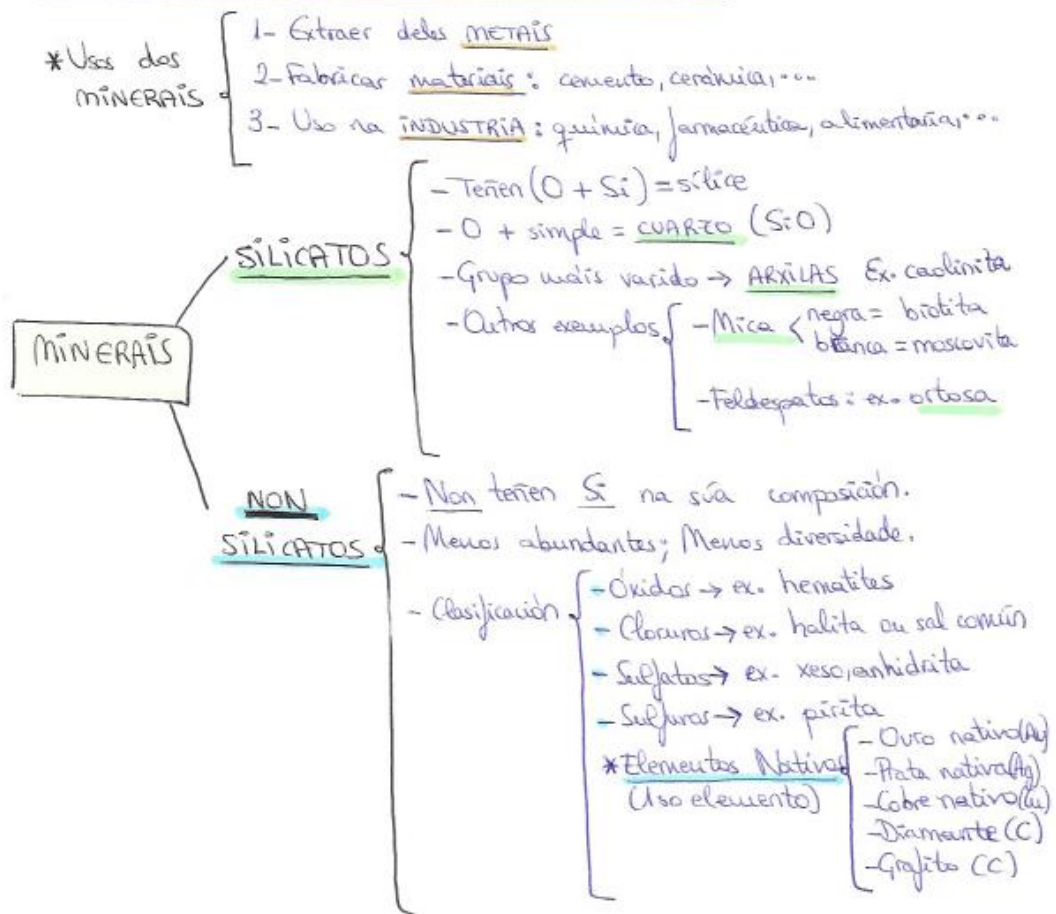 *Usos dos MINERAIS
1- Extraer deles METAIS
2- Fabricar materiais: cemento, cerámica,...
3- Uso na INDUSTRIA: química, farmacéutica, alimentaria,...
MINERAIS
SILICATOS
- Teñen (O + Si) = sílice
- O + simple = CUARZO (SiO)
- Grupo máis varido → ARXILAS Ex. caolinita
- Outros exemplos
- Mica
negra = biotita
branca = moscovita
- Feldespatos: ex. ortosa
NON SILICATOS
- Non teñen Si na súa composición.
- Menos abundantes; Menos diversidade.
- Clasificación
- Óxidos → ex. hematites
- Cloruros → ex. halita ou sal común
- Sulfatos → ex. xeso, anhidrita
- Sulfuros → ex. pirita
*Elementos Nativos
(1 so elemento)
- Ouro nativo (Au)
- Prata nativa (Ag)
- Cobre nativo (Cu)
- Diamante (C)
- Grafito (C)